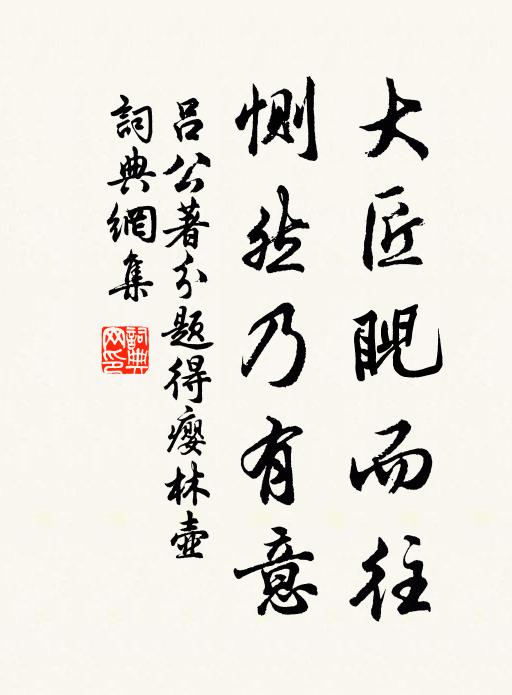 大匠睨而往
惻然乃有意
吕公著分题得瘿林壶
詞典網集
詞典網印